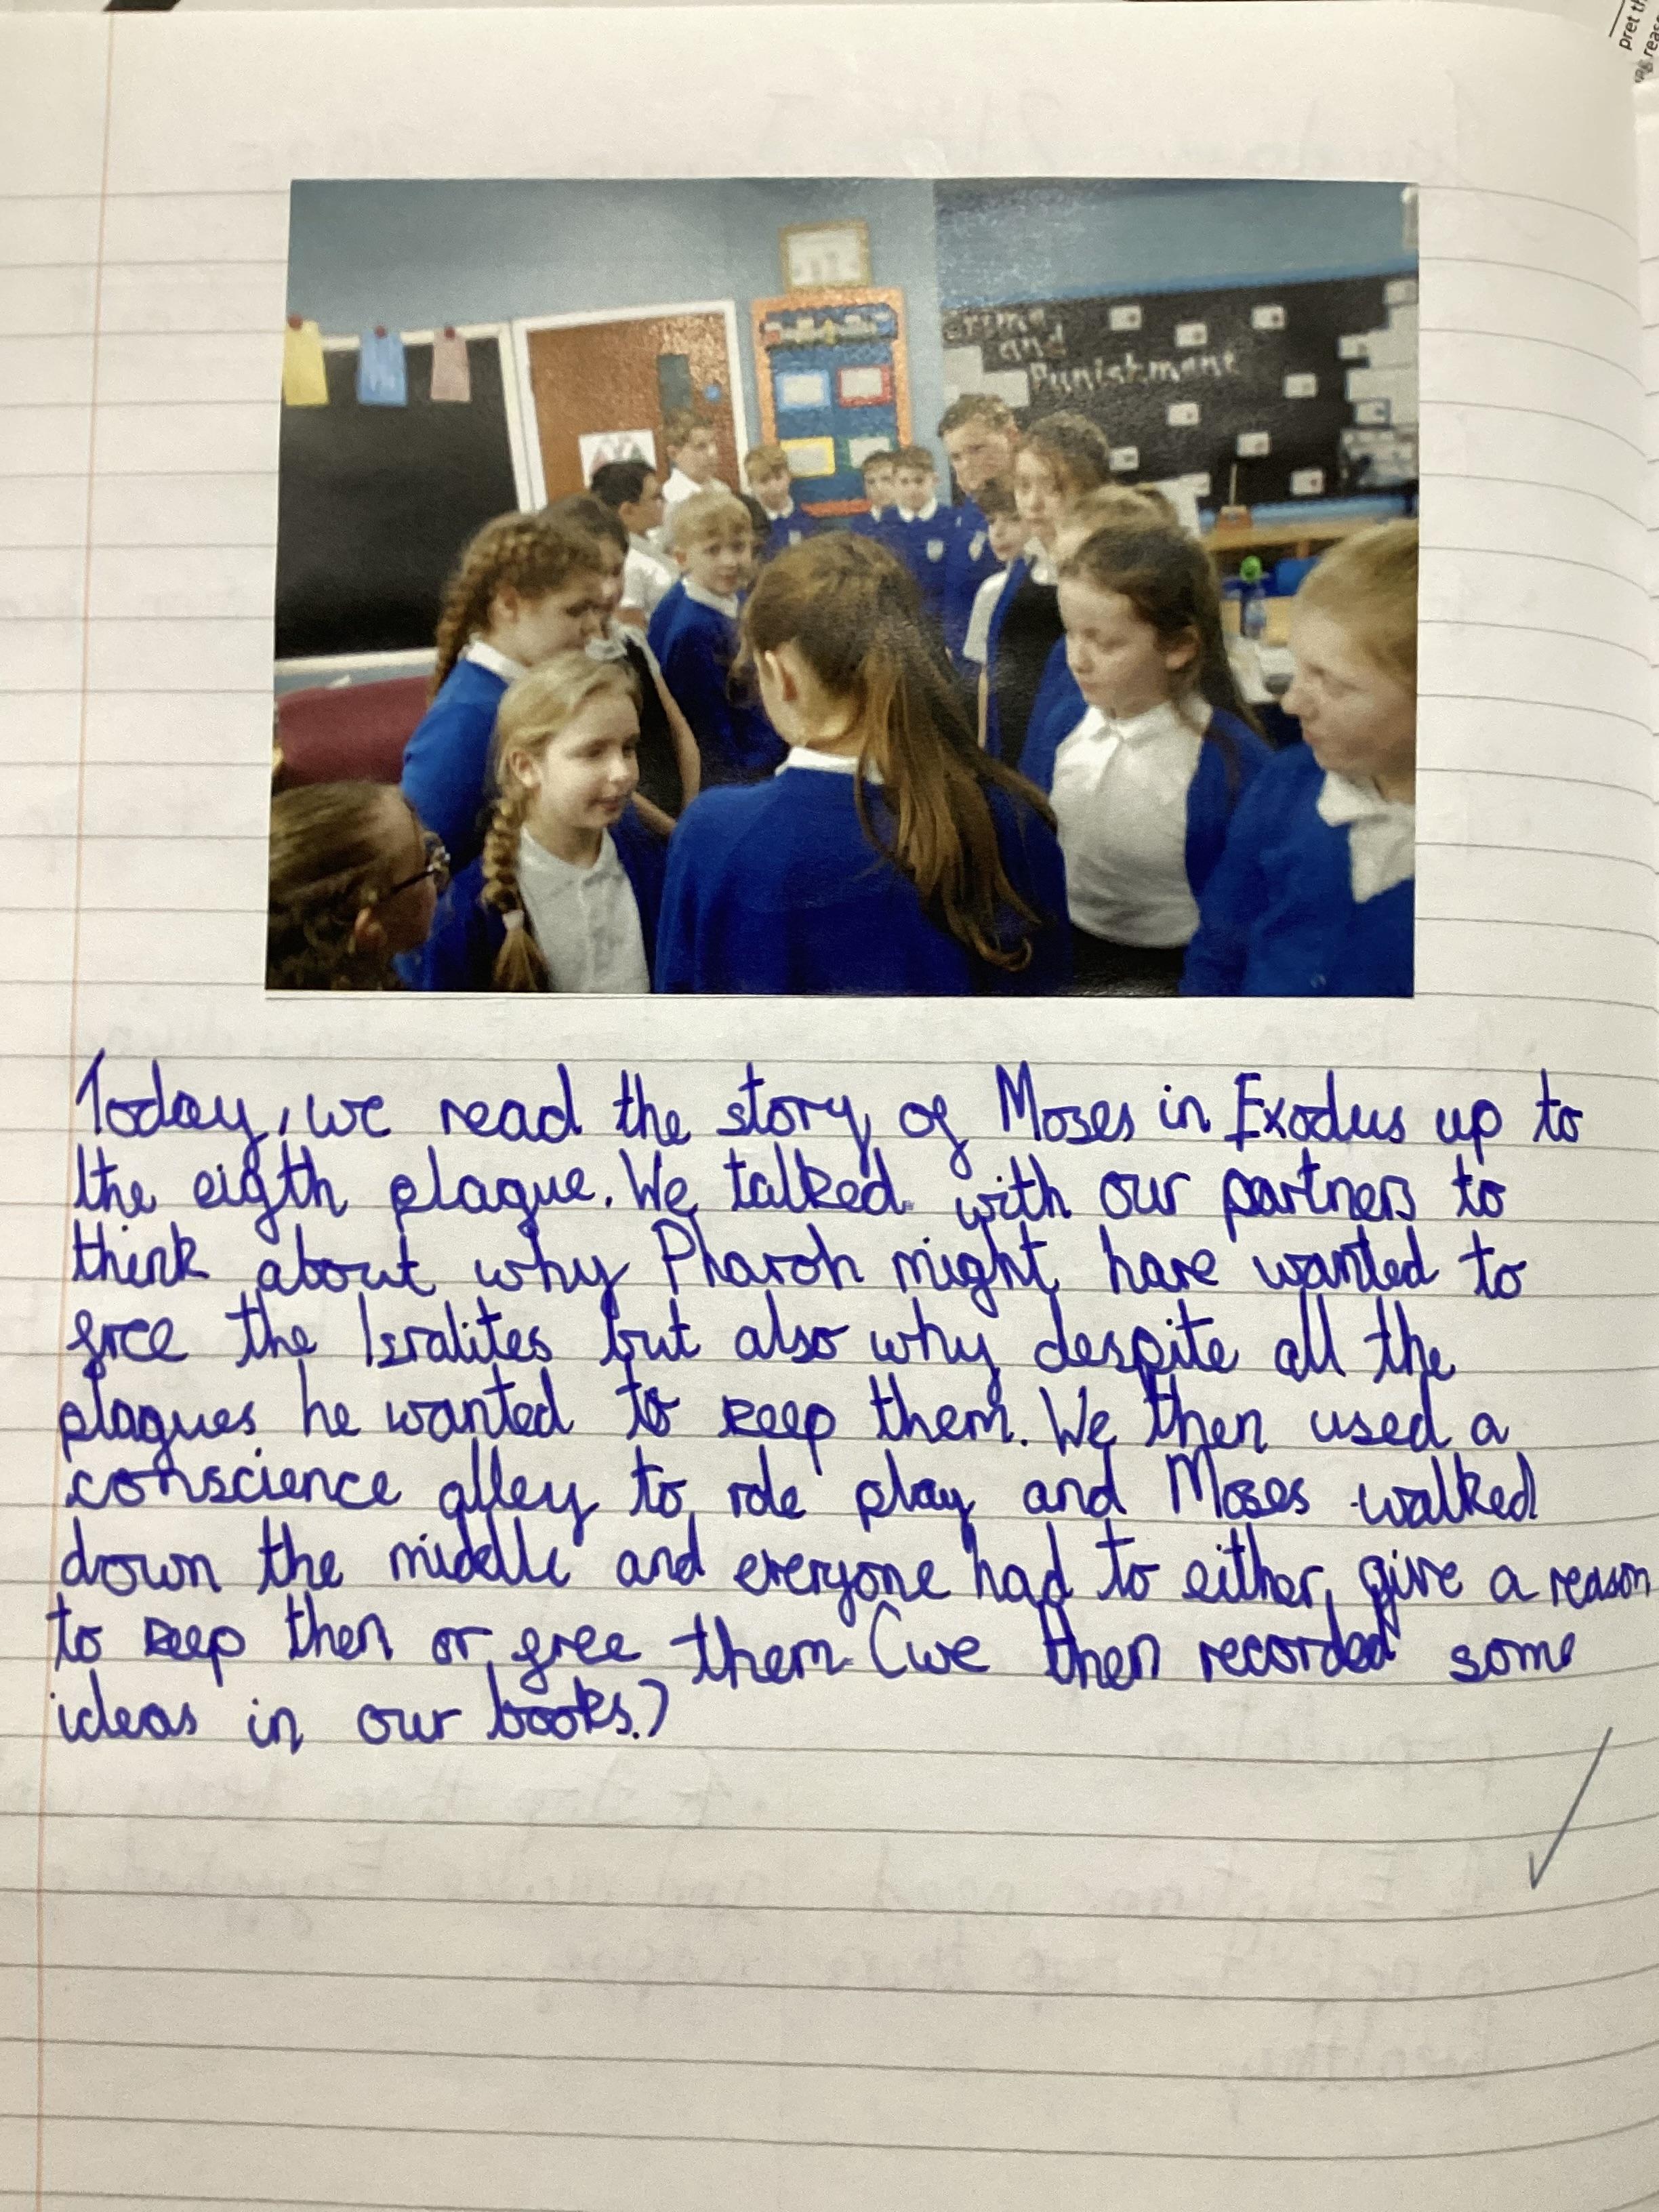 pret th
reas
Crime
and
Punishment
Today, we read the story of Moses in Exodus up to
the eigth plague. We talked with our partners to
think about why Pharoh might have wanted to
free the Isralites but also why despite all the
plagues he wanted to keep them. We then used a
conscience alley to role play and Moses walked
down the middle and everyone had to either give a reason
to keep then or free them (we then recorded some
ideas in our books.)